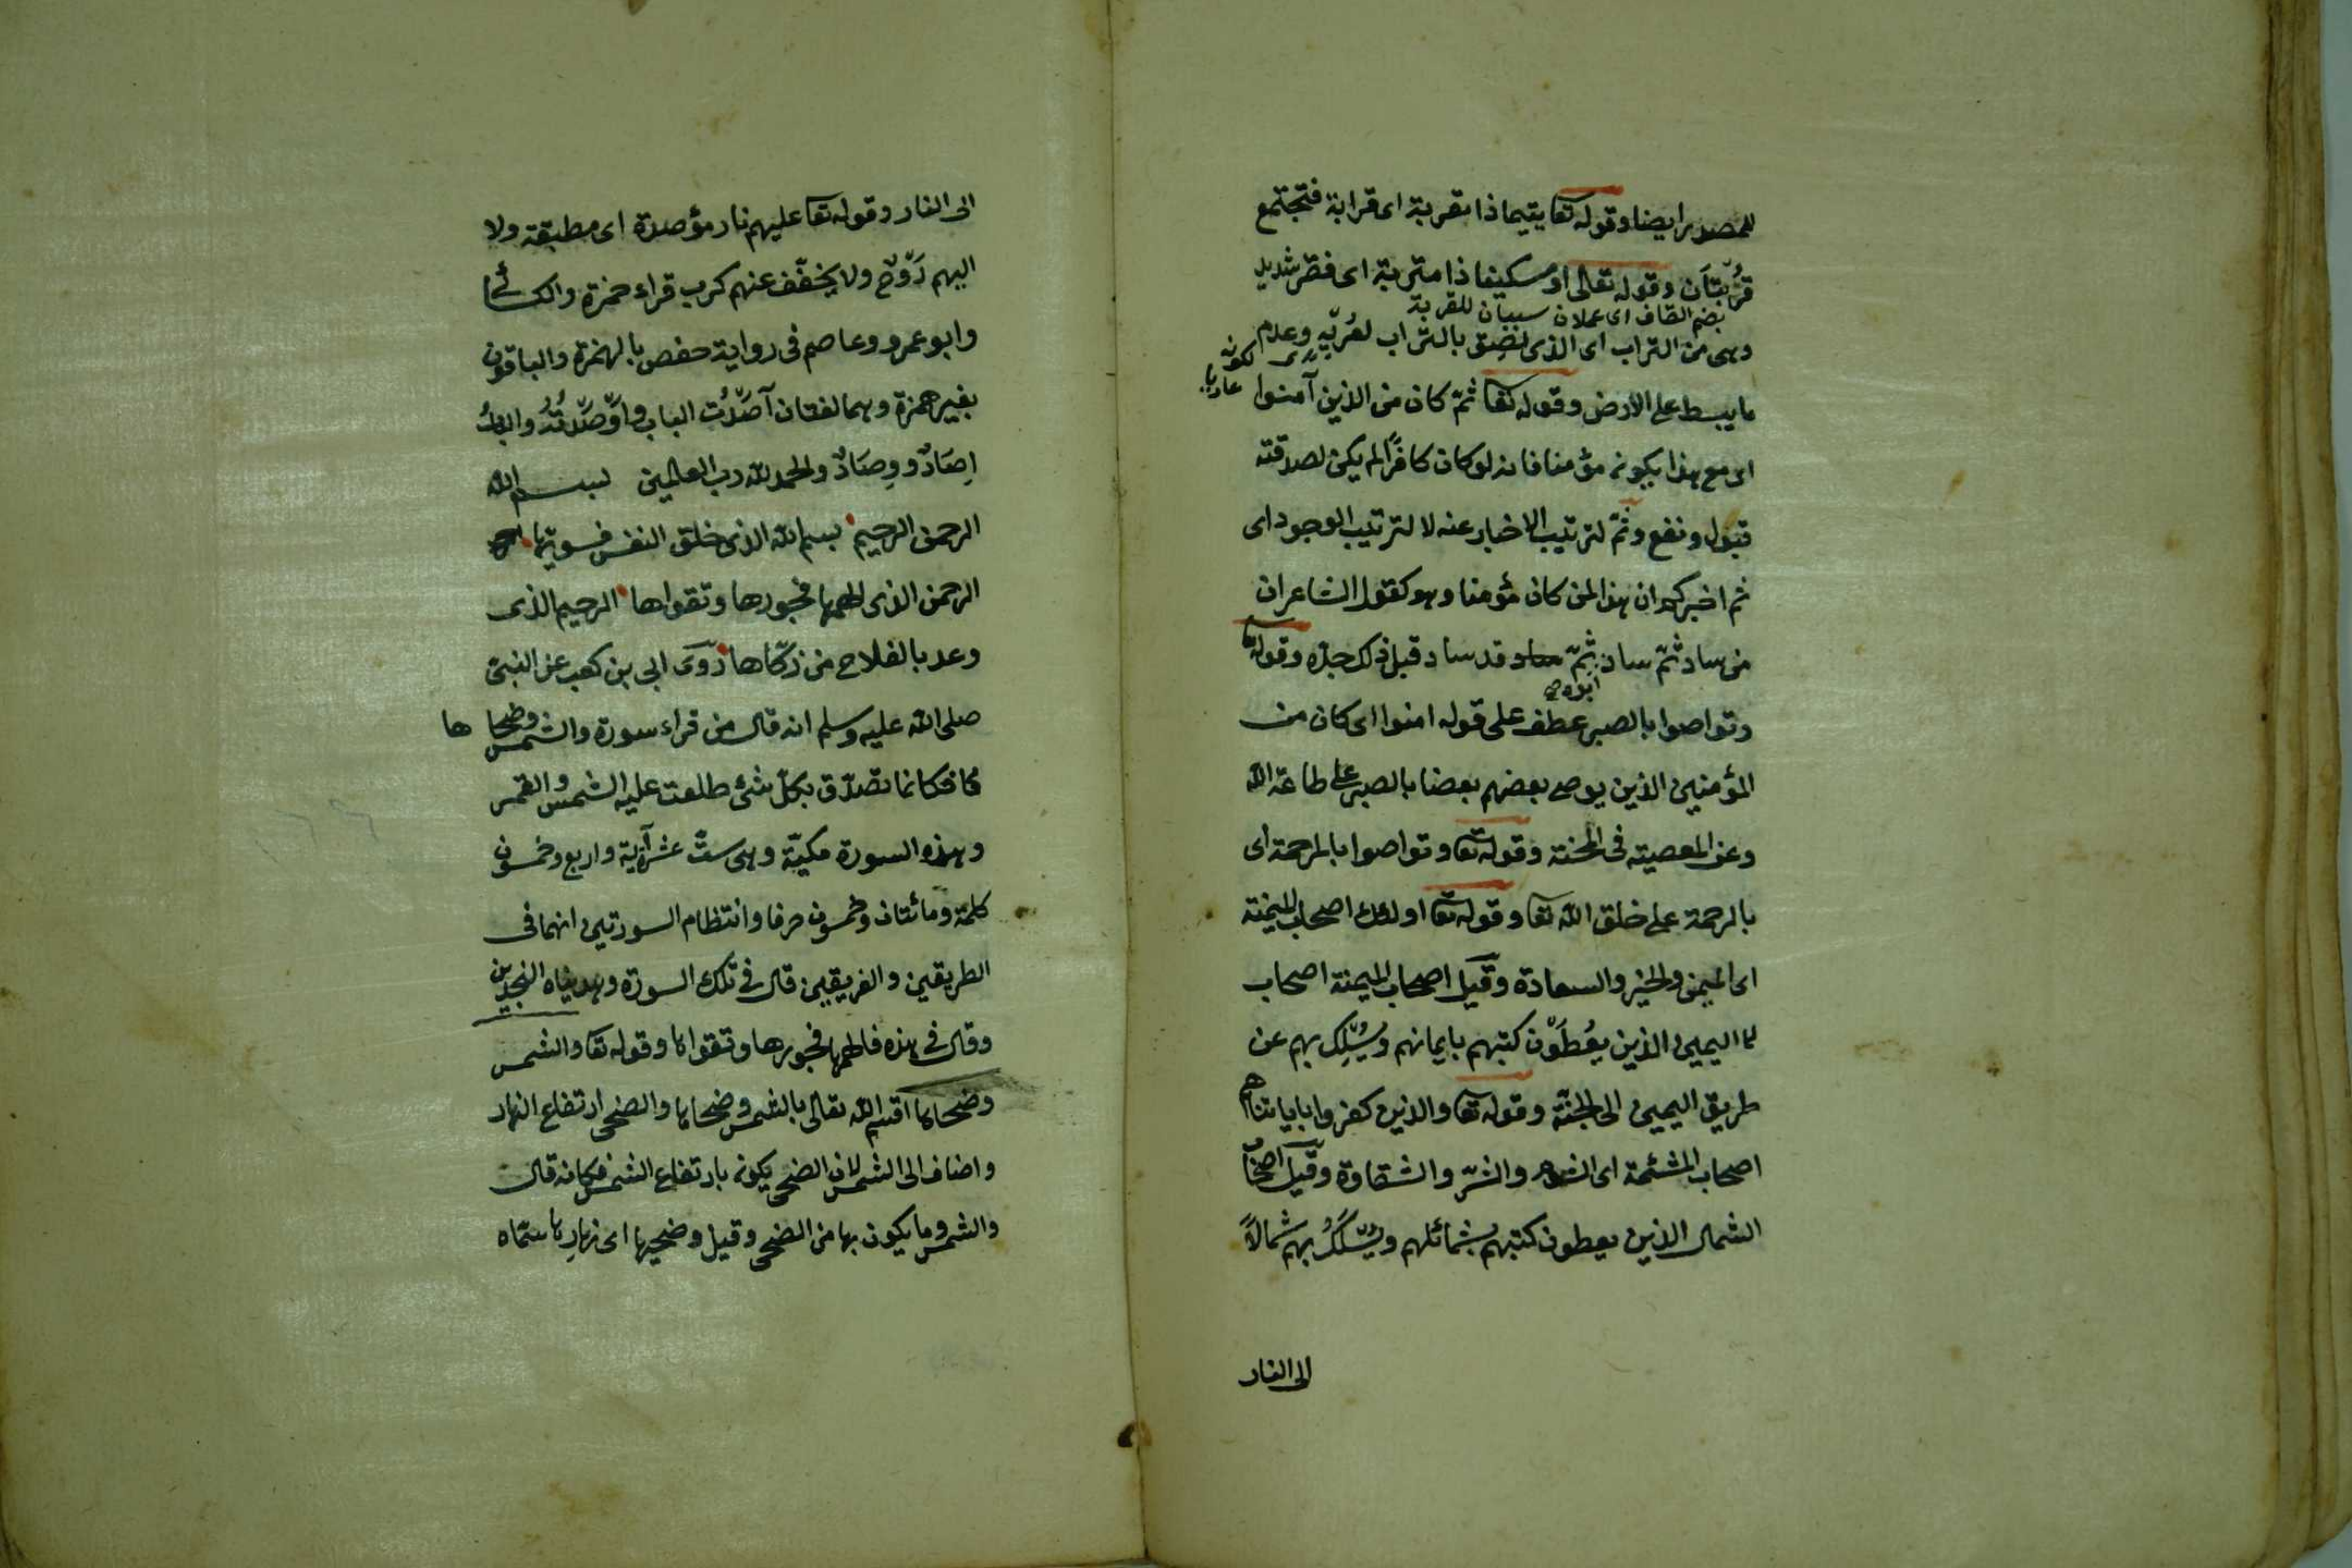 للمصدر ايضا وقوله تعا يتيما ذا مقربة اى قرابة فتجتمع
قُرْبتَان وقوله تعالى او مسكينا ذا متربة اى فقر شديد
بضم القاف اى عملان سببان للقربة
وهى من التراب اى الذى لصِق بالتراب لعُريِه وعدم
لكونه عاريا
ما يبسط على الارض وقوله تعا ثمّ كان من الذين آمنوا
اى مع هذا يكون مؤمنا فانه لو كان كافرًا لم يكن لصدقته
قبول ونفع وثمّ لترتيب الاخبار عنه لا لترتيب الوجود اى
ثم اخبركم ان هذا لمن كان مؤمنا وهو كقول الشاعر ان
من ساد ثمّ ساد ثمّ قد ساد قبل ذلك جدّه وقوله تعا
ابوه صح
وتواصوا بالصبر عطف على قوله امنوا اى كان من
المؤمنين الذين يوصى بعضهم بعضا بالصبر على طاعة الله
وعن المعصيته فى المحنة وقوله تعا وتواصوا بالمرحمة اى
بالرحمة على خلق الله تعا وقوله تعا اولئك اصحاب الميمنة
اى الميمن والخير والسعادة وقيل اصحاب الميمنة اصحاب
اليمين الذين يعُطَوْن كتبهم بايمانهم ويُسْلك بهم عن
طريق اليمين الى الجنّة وقوله تعا والذين كفروا باياتنا هم
اصحاب المشئمة اى الشوم والشرّ والشقاوة وقيل اصحاب
الشمال الذين يعطون كتبهم بشمائلهم ويُسْلَكُ بهم شمالاً
الى النار
الى النار وقوله تعا عليهم نار مؤصدة اى مطبقة ولا
اليهم رَوْح ولا يخفّف عنهم كرب قراء حمزة والكسائى
وابو عمرو وعاصم فى رواية حفص بالهمزة والباقون
بغير همزة وهما لغتان آصَدْتُ الباب واَوْصَدْتُهُ
اِصَادٌ و وِصَادٌ والحمد لله رب العالمين بسم الله
الرحمن الرحيم بسم الله الذى خلق النفس فسويها
الرحمن الذى الهمها فجورها وتقواها الرحيم الذى
وعد بالفلاح من زكّاها روى ابى بن كعب عن النبىّ
صلى الله عليه وسلم انه قال من قراء سورة والشمس وضحا ها
فكانما تصدّق بكلّ شئ طلعت عليه الشمس والقمر
وهذه السورة مكيّة وهى ستّ عشرة آية واربع وخمسون
كلمة ومائتان وخمسون حرفا وانتظام السورتين انهما فى
الطريقين والفريقين قال فى تلك السورة وهديناه النجدين
وقال فى هذه فالهمها فجورها وتقواها وقوله تعا والشمس
وضحاها اقسم الله تعالى بالشمس وضحاها والضحى ارتفاع النهار
واضاف الى الشمس لان الضحى يكون بارتفاع الشمس فكانه قال
والشمس وما يكون بها من الضحى وقيل وضحيها اى نهارها سمّاه